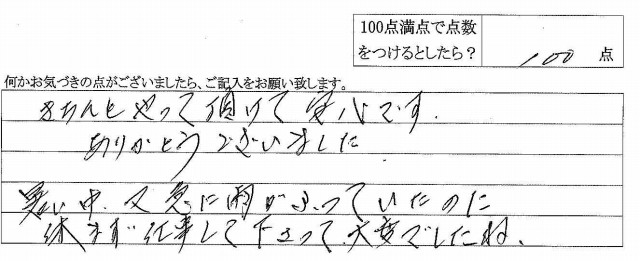 100点満点で点数
をつけるとしたら？ 100 点
何かお気づきの点がございましたら、ご記入をお願い致します。
きちんとやって頂けて安心です.
ありがとうございました
寒い中、又急に雨がふっていたのに
休まず仕事して下さって、大変でしたね、